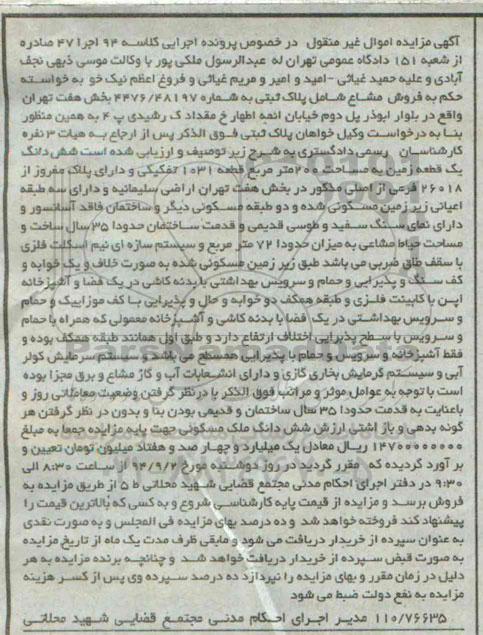 آگهی مزایده اموال غیر منقول در خصوص پرونده اجرایی کلاسه ۹۴ اجرا ۴۷ صادره
از شعبه ۱۵۱ دادگاه عمومی تهران له عبدالرسول ملکی پور با وکالت موسی ذبهی نجف
آبادی و علیه حمید غیاثی -امید و امیر و مریم غیاثی و فروغ اعظم نیک خو به خواسته
حکم به فروش مشاع شامل پلاک ثبتی به شماره ۴۴۷۶/۴۸۱۹۷ بخش هفت تهران
واقع در بلوار ابوذر پل دوم خیابان ائمه اطهار خ مقداد ک رشیدی پ ۴ به همین منظور
بنا به درخواست وکیل خواهان پلاک ثبتی فوق الذکر پس از ارجاع به هیات ۳ نفره
کارشناسان رسمی دادگستری به شرح زیر توصیف و ارزیابی شده است شش دانگ
یک قطعه زمین به مساحت ۲۰۰ متر مربع قطعه ۱۰۳۱ تفکیکی و دارای پلاک مفروز از
۲۶۰۱۸ فرعی از اصلی مذکور در بخش هفت تهران اراضی سلیمانیه و دارای سه طبقه
اعیانی زیرزمین مسکونی شده و دو طبقه مسکونی دیگر و ساختمان فاقد آسانسور و
دارای نمای سنگ سفید و طوسی قدیمی و قدمت ساختمان حدودا ۳۵ سال ساخت و
مساحت حیاط مشاعی به میزان حدودا ۷۲ متر مربع و سیستم سازه ای نیم اسکلت فلزی
با سقف طاق ضربی می باشد طبق زیر زمین مسکونی شده به صورت خلاف و یک خوابه و
کف سنگ و پذیرایی و حمام و سرویس بهداشتی با بدنه کاشی در یک فضا و آشپزخانه
اپن با کابینت فلزی و طبقه همکف دو خوابه و حال و پذیرایی با کف موزاییک و حمام
و سرویس بهداشتی در یک فضا با بدنه کاشی و آشپزخانه معمولی که همراه با حمام
و سرویس با سطح پذیرایی اختلاف ارتفاع دارد و طبق اول همانند طبقه همکف بوده و
فقط آشپزخانه و سرویس و حمام با پذیرایی همسطح می باشد و سیستم سرمایش کولر
آبی و سیستم گرمایش بخاری گازی و دارای انشعابات آب و گاز مشاع و برق مجزا بوده
است با توجه به عوامل موثر و مراتب فوق الذکر با درنظر گرفتن وضعیت معاملاتی روز و
باعنایت به قدمت حدودا ۳۵ سال ساختمان و قدیمی بودن بنا و بدون در نظر گرفتن هر
گونه بدهی و باز اشتی ارزش شش دانگ ملک مسکونی جهت پایه مزایده جمعا به مبلغ
۱۴۷۰۰۰۰۰۰۰۰ ریال معادل یک میلیارد و چهار صد و هفتاد میلیون تومان تعیین و
بر آورد گردیده که مقرر گردید در روز دوشنبه مورخ ۹۴/۹/۲ از ساعت ۸:۳۰ الی
۹:۳۰ در دفتر اجرای احکام مدنی مجتمع قضایی شهید محلاتی ط ۵ از طریق مزایده به
فروش برسد و مزایده از قیمت پایه کارشناسی شروع و به کسی که بالاترین قیمت را
پیشنهاد کند فروخته خواهد شد و ده درصد بهای مزایده فی المجلس و به صورت نقدی
به عنوان سپرده از خریدار دریافت می شود و مابقی ظرف مدت یک ماه از تاریخ مزایده
به صورت قبض سپرده از خریدار دریافت خواهد شد و چنانچه برنده مزایده به هر
دلیل در زمان مقرر و بهای مزایده را نپردازد ده درصد سپرده وی پس از کسر هزینه
مزایده به نفع دولت ضبط می شود
۱۱۰/۷۶۶۳۵ مدیر اجرای احکام مدنی مجتمع قضایی شهید محلاتی